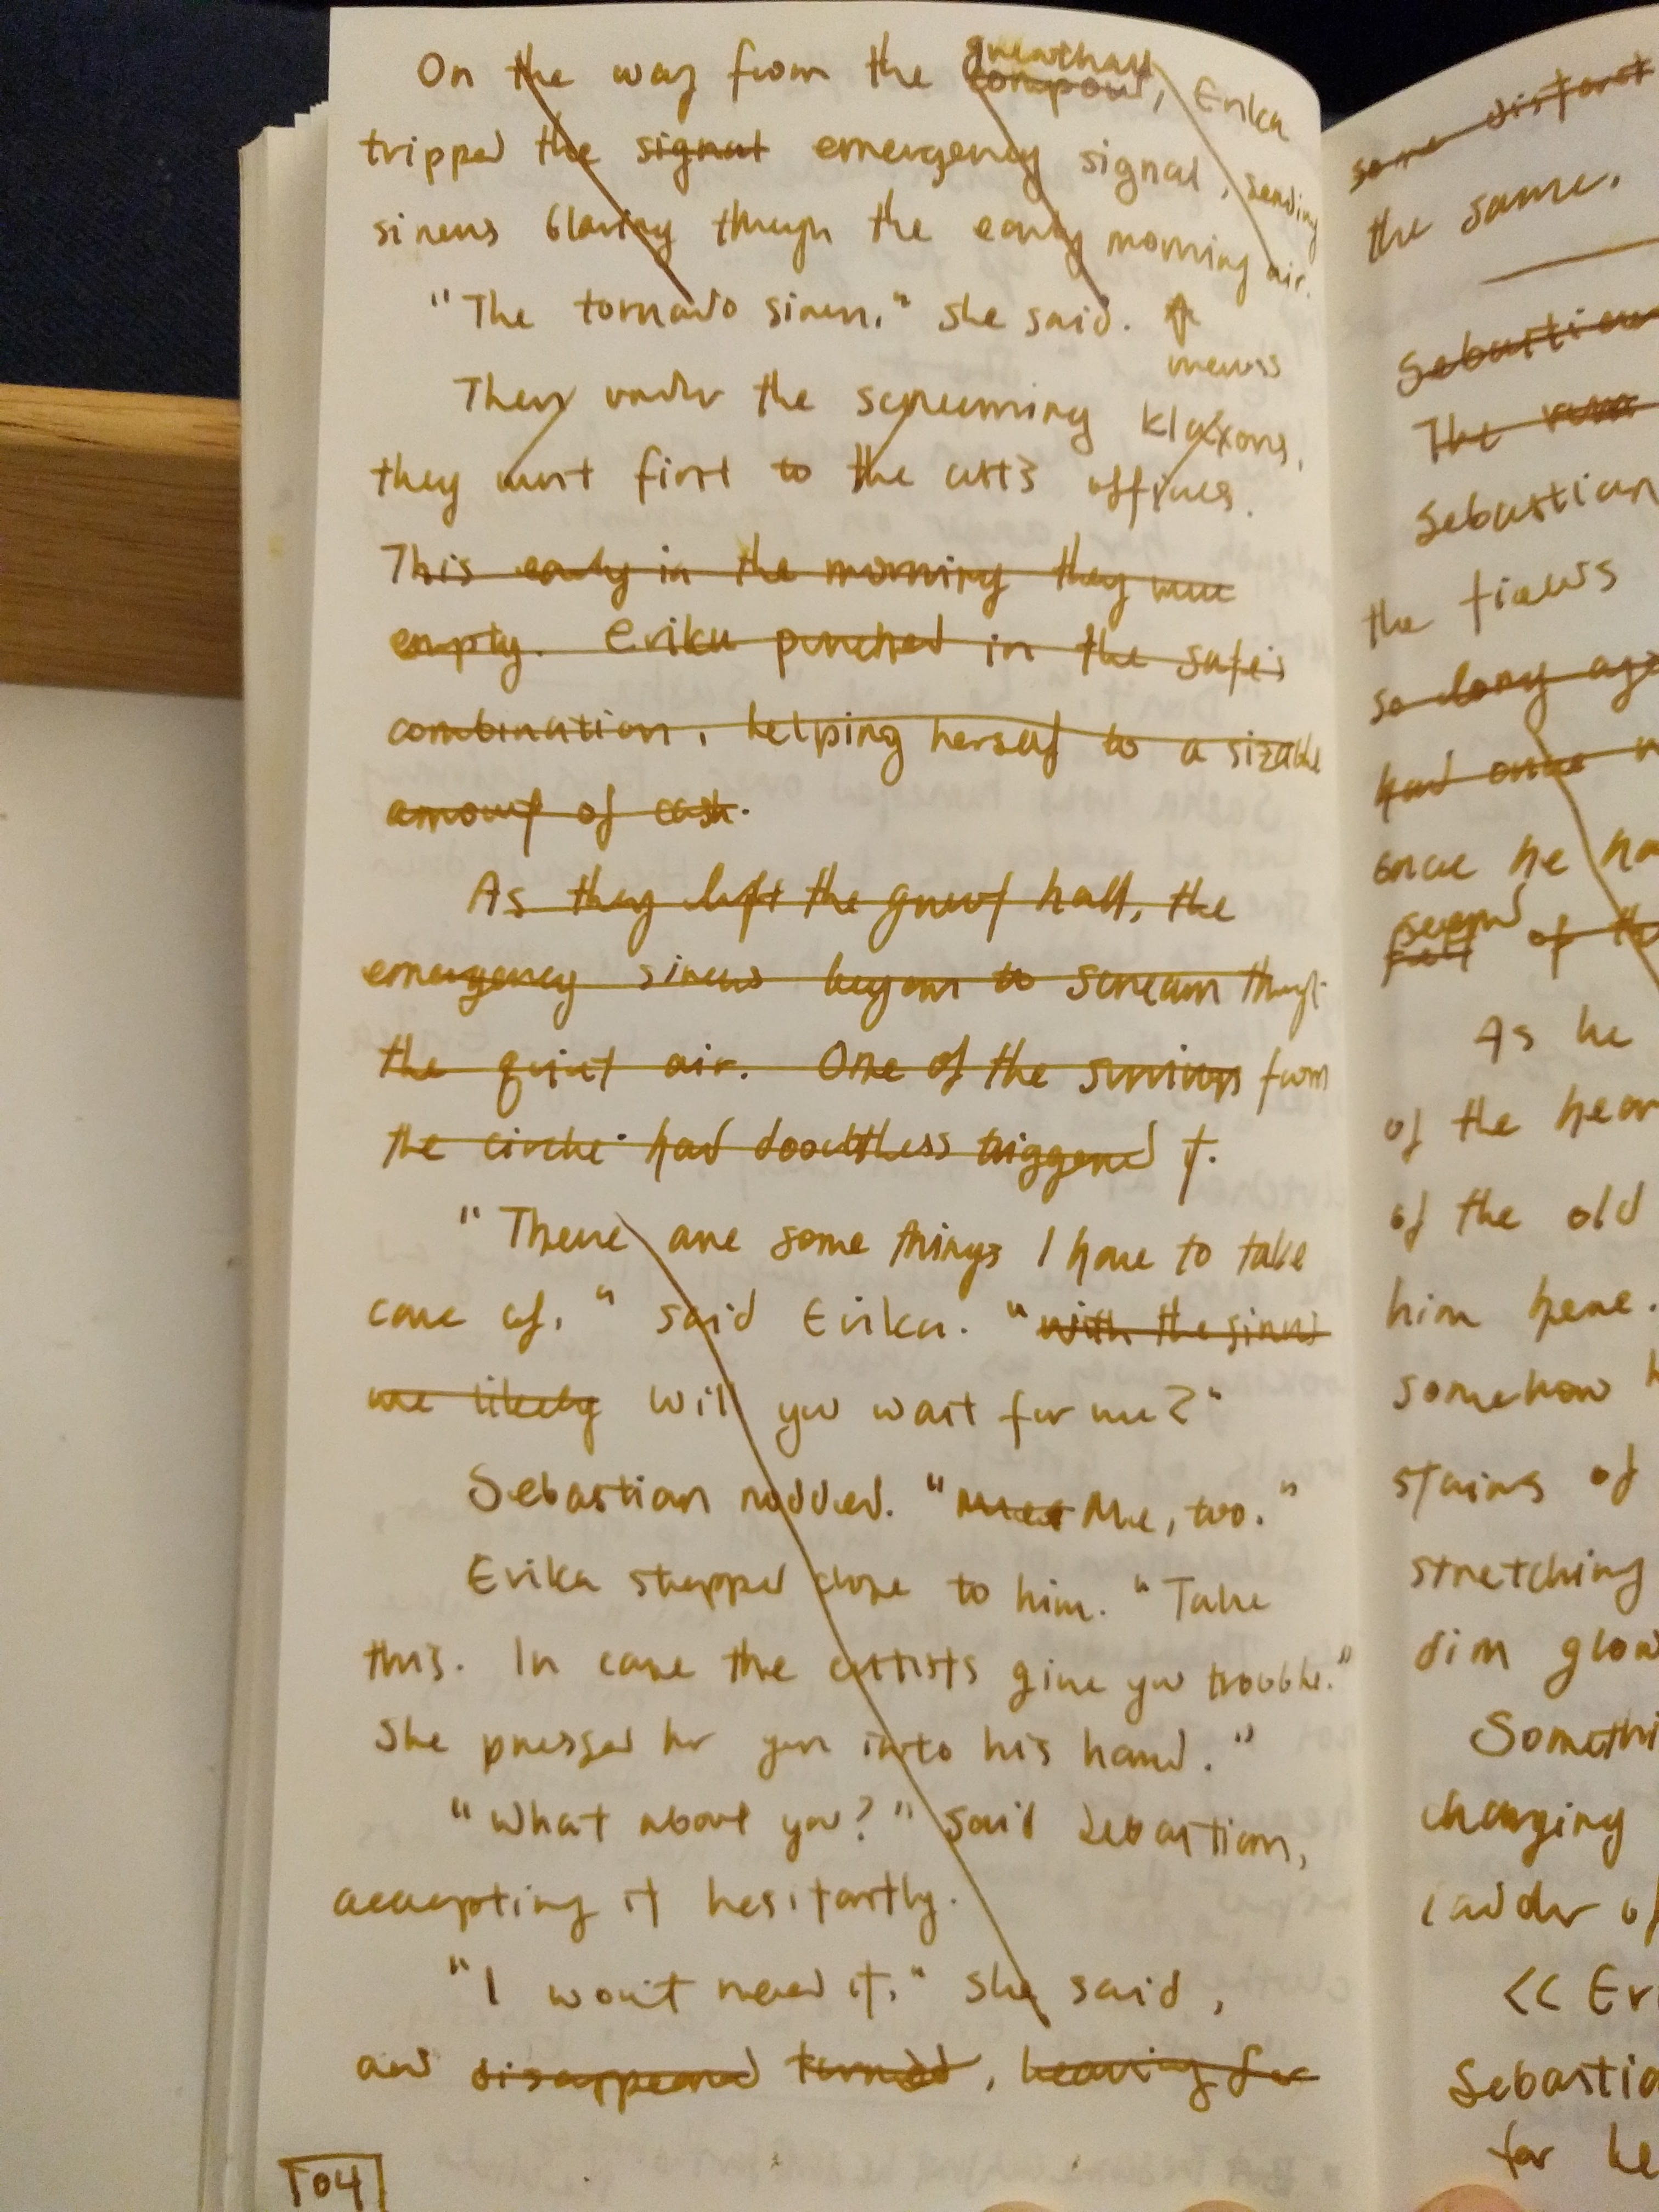 On the way from the greathall compound, Erika
tripped the signal emergency signal, sending
sirens blaring through the early morning air.
"The tornado siren," she said.
Then under the screaming klaxons,
they went first to the cult's offices.
This early in the morning they were
empty. Erika punched in the safe's
combination, helping herself to a sizable
amount of cash.
As they left the great hall, the
emergency sirens began to scream through
the quiet air. One of the survivors from
the circle had doubtless triggered it.
"There are some things I have to take
care of," said Erika. "with the sirens
we likely Will you wait for me?"
Sebastian nodded. "Meet Me, too."
Erika stepped close to him. "Take
this. In case the cultists give you trouble."
She pressed her gun into his hand."
"What about you?" said Sebastian,
accepting it hesitantly.
"I won't need it," she said,
and disappeared turned, leaving for
104
some distant
the same.
Sebastian
The
Sebastian
the
so long ago
had once
once he
seemed
felt of
As he
of the
of the old
him here.
somehow
stains of
stretching
dim glow
changing
<< Er
for